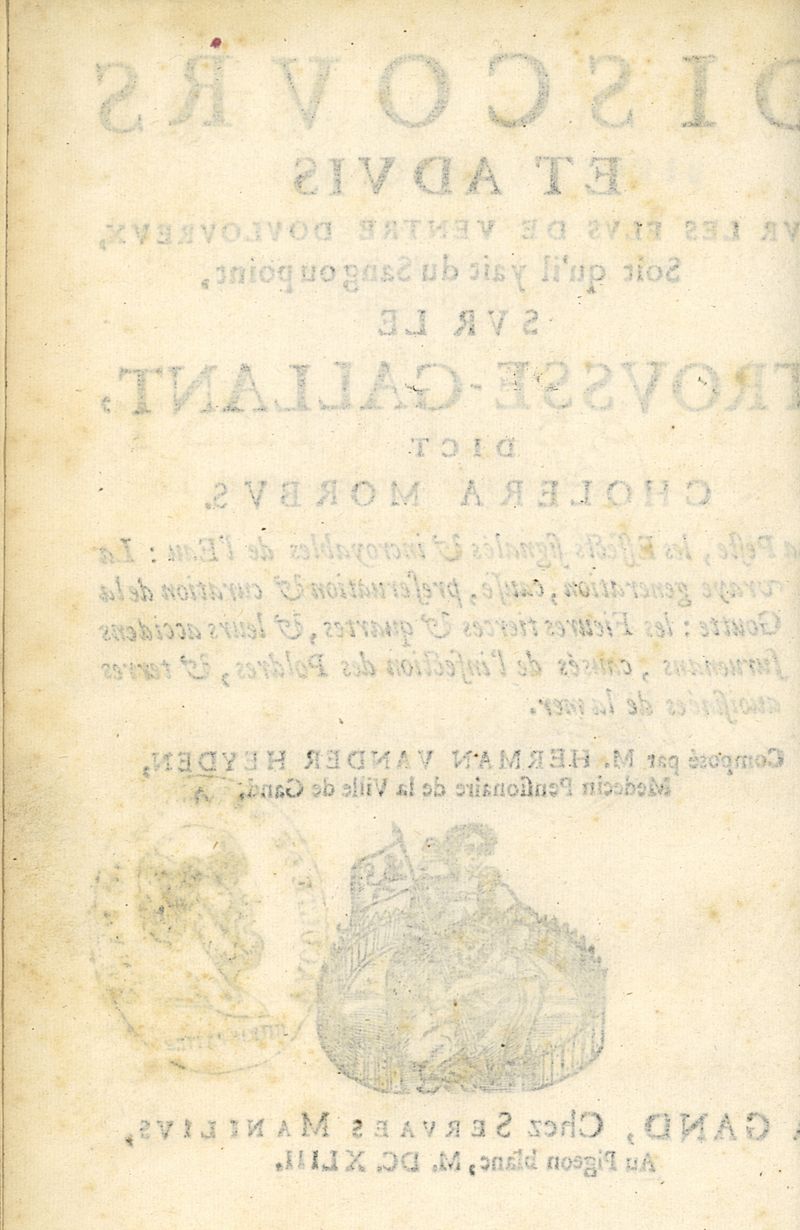 DISCOVRS
ET ADVIS
VR LES FLVS DE VENTRE DOVLOVREVX,
Soit qu'il y ait du Sang ou point,
SVR LE
TROVSSE-GALLANT,
DICT
CHOLERA MORBVS.
Peste, les Effects signalés & incroyables de l'Eau : La
vraye generation, cause, preseruation & curation de la
Goutte : les Fieures tierces & quartes, & leurs accidens
suruenans, causés de l'infection des Poldres, & terres
auoisinées de la mer.
Composé par M. HERMAN VANDER HEYDEN,
Medecin Pensionaire de la Ville de Gand.
A GAND, Chez SERVAES MANILIVS,
Au Pigeon blanc, M. DC. XLIII.